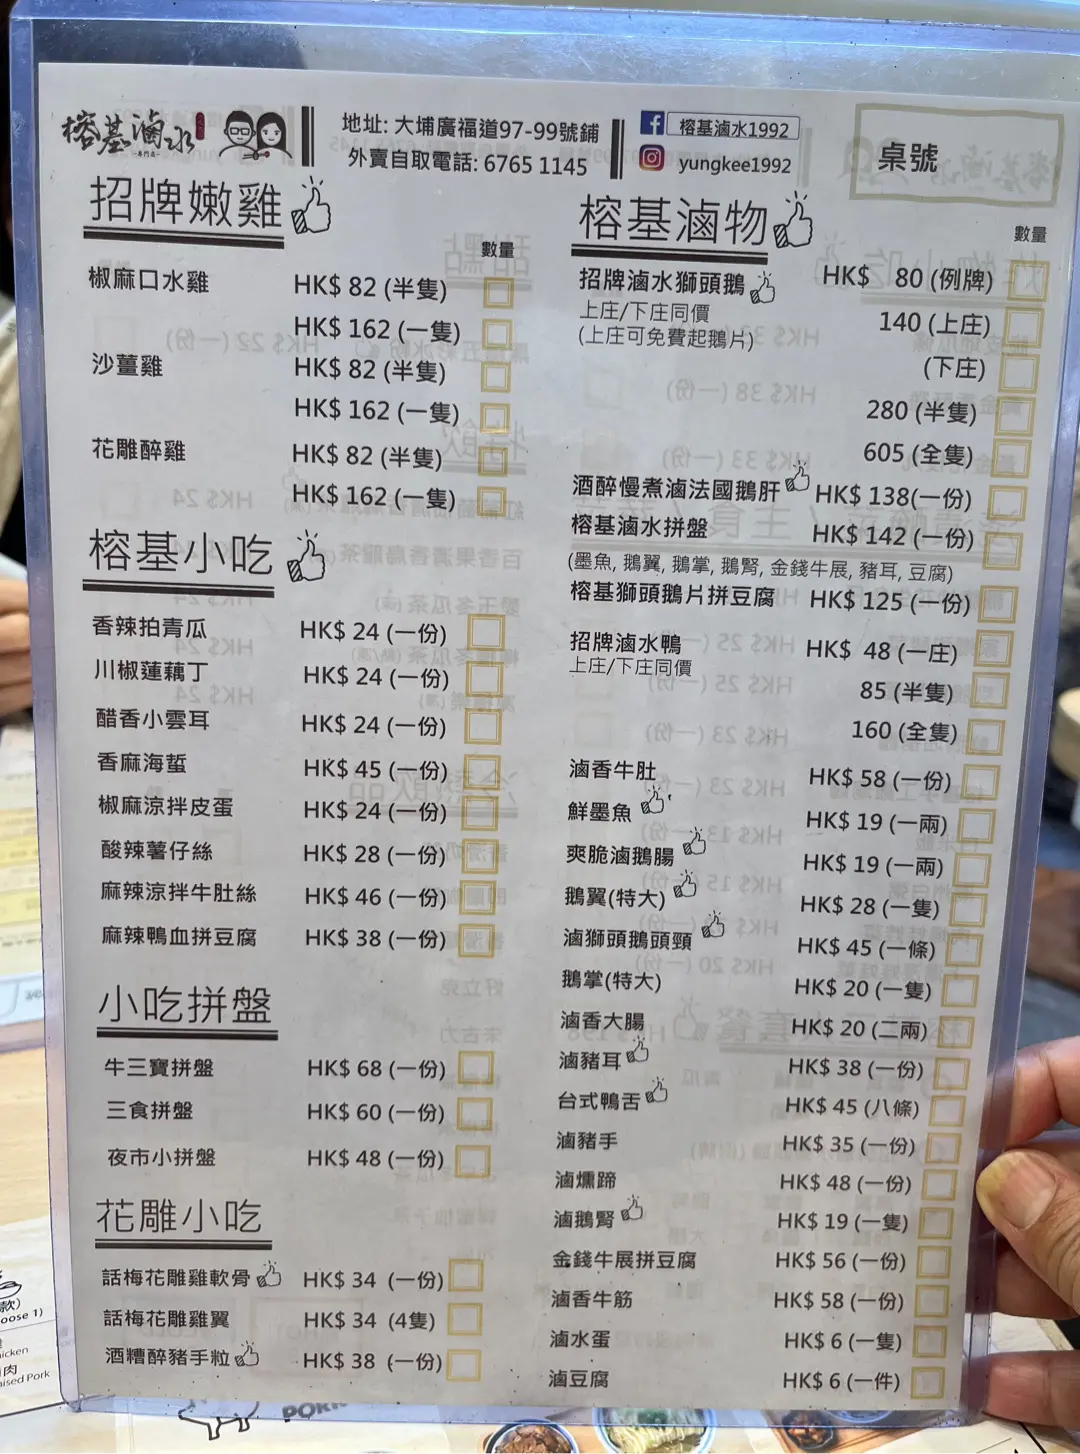 榕基滷水
地址: 大埔廣福道97-99號鋪
外賣自取電話: 6765 1145
榕基滷水1992
yungkee1992
桌號
招牌嫩雞
數量
椒麻口水雞 HK$ 82 (半隻)
HK$ 162 (一隻)
沙薑雞 HK$ 82 (半隻)
HK$ 162 (一隻)
花雕醉雞 HK$ 82 (半隻)
HK$ 162 (一隻)
榕基小吃
香辣拍青瓜 HK$ 24 (一份)
川椒蓮藕丁 HK$ 24 (一份)
醋香小雲耳 HK$ 24 (一份)
香麻海蜇 HK$ 45 (一份)
椒麻涼拌皮蛋 HK$ 24 (一份)
酸辣薯仔絲 HK$ 28 (一份)
麻辣涼拌牛肚絲 HK$ 46 (一份)
麻辣鴨血拼豆腐 HK$ 38 (一份)
小吃拼盤
牛三寶拼盤 HK$ 68 (一份)
三食拼盤 HK$ 60 (一份)
夜市小拼盤 HK$ 48 (一份)
花雕小吃
話梅花雕雞軟骨 HK$ 34 (一份)
話梅花雕雞翼 HK$ 34 (4隻)
酒糟醉豬手粒 HK$ 38 (一份)
榕基滷物
數量
招牌滷水獅頭鵝 HK$ 80 (例牌)
上庄/下庄同價
140 (上庄)
(上庄可免費起鵝片)
(下庄)
280 (半隻)
605 (全隻)
酒醉慢煮滷法國鵝肝 HK$ 138(一份)
榕基滷水拼盤 HK$ 142 (一份)
(墨魚, 鵝翼, 鵝掌, 鵝腎, 金錢牛展, 豬耳, 豆腐)
榕基獅頭鵝片拼豆腐 HK$ 125 (一份)
招牌滷水鴨 HK$ 48 (一庄)
上庄/下庄同價
85 (半隻)
160 (全隻)
滷香牛肚 HK$ 58 (一份)
鮮墨魚 HK$ 19 (一兩)
爽脆滷鵝腸 HK$ 19 (一兩)
鵝翼(特大) HK$ 28 (一隻)
滷獅頭鵝頭頸 HK$ 45 (一條)
鵝掌(特大) HK$ 20 (一隻)
滷香大腸 HK$ 20 (二兩)
滷豬耳 HK$ 38 (一份)
台式鴨舌 HK$ 45 (八條)
滷豬手 HK$ 35 (一份)
滷燻蹄 HK$ 48 (一份)
滷鵝腎 HK$ 19 (一隻)
金錢牛展拼豆腐 HK$ 56 (一份)
滷香牛筋 HK$ 58 (一份)
滷水蛋 HK$ 6 (一隻)
滷豆腐 HK$ 6 (一件)